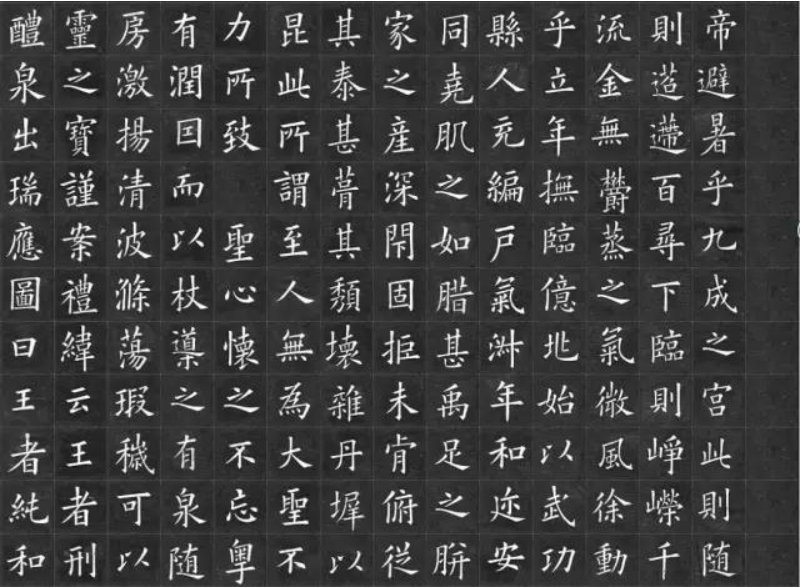 帝避暑乎九成之宫此則随
則迢遰百尋下臨則崢嶸千
流金無欝蒸之氣微風徐動
乎立年撫臨億兆始以武功
縣人充編戶氣淑年和迩安
同堯肌之如腊甚禹足之胼
家之産深閇固拒未肯俯従
其泰甚葺其頽壞雜丹墀以
昆此所謂至人無為大聖不
力所致 聖心懷之不忘粤
有潤因而以杖導之有泉随
房激揚清波滌蕩瑕穢可以
靈之寶謹案禮緯云王者刑
醴泉出瑞應圖曰王者純和